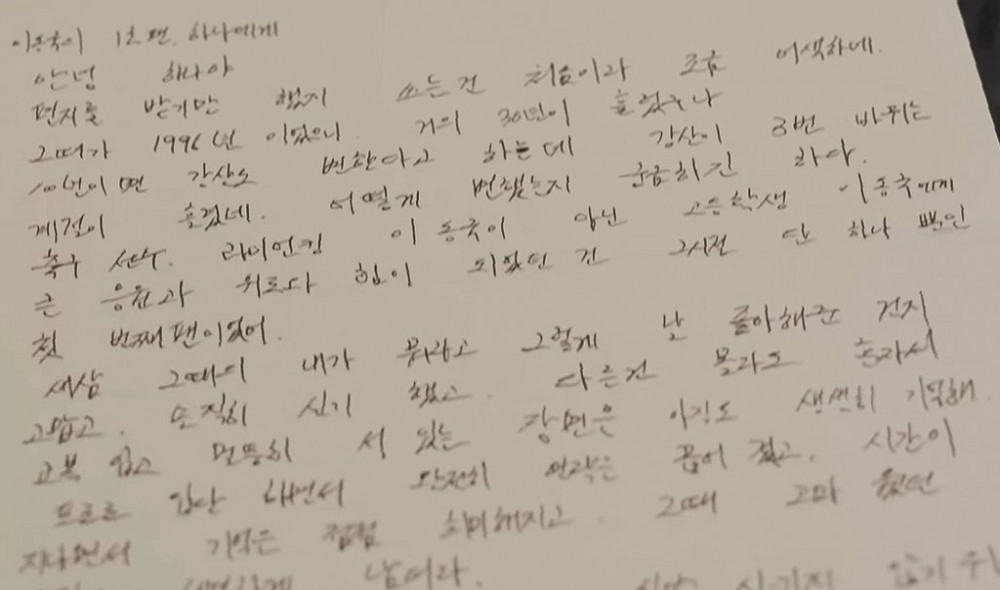 이동국이 1호 팬. 하나에게
안녕 하나야
편지를 받기만 했지 쓰는건 처음이라 조금 어색하네.
그때가 1996년 이었으니. 거의 30년이 흘렀구나
10년이면 강산도 변한다고 하는데 강산이 3번 바뀌는
계절이 흘렀네. 어떻게 변했는지 궁금하긴 하다.
축구 선수. 라이언킹 이동국이 아닌 고등학생 이동국에게
큰 응원과 위로다 힘이 되었던 건 그시절 단 하나 뿐인
첫 번째 팬이었어.
새삼 그때의 내가 뭐라고 그렇게 날 좋아해준 건지
고맙고. 솔직히 신기 했고. 다른건 몰라도 혼자서
교복 입고 멀뚱히 서 있는 장면은 아직도 생생히 기억해.
프로로 입단 하면서 완전히 연락은 끊어 졌고. 시간이
지나면서 기억은 점점 희미해지고. 그때 고마 웠던
남더라.